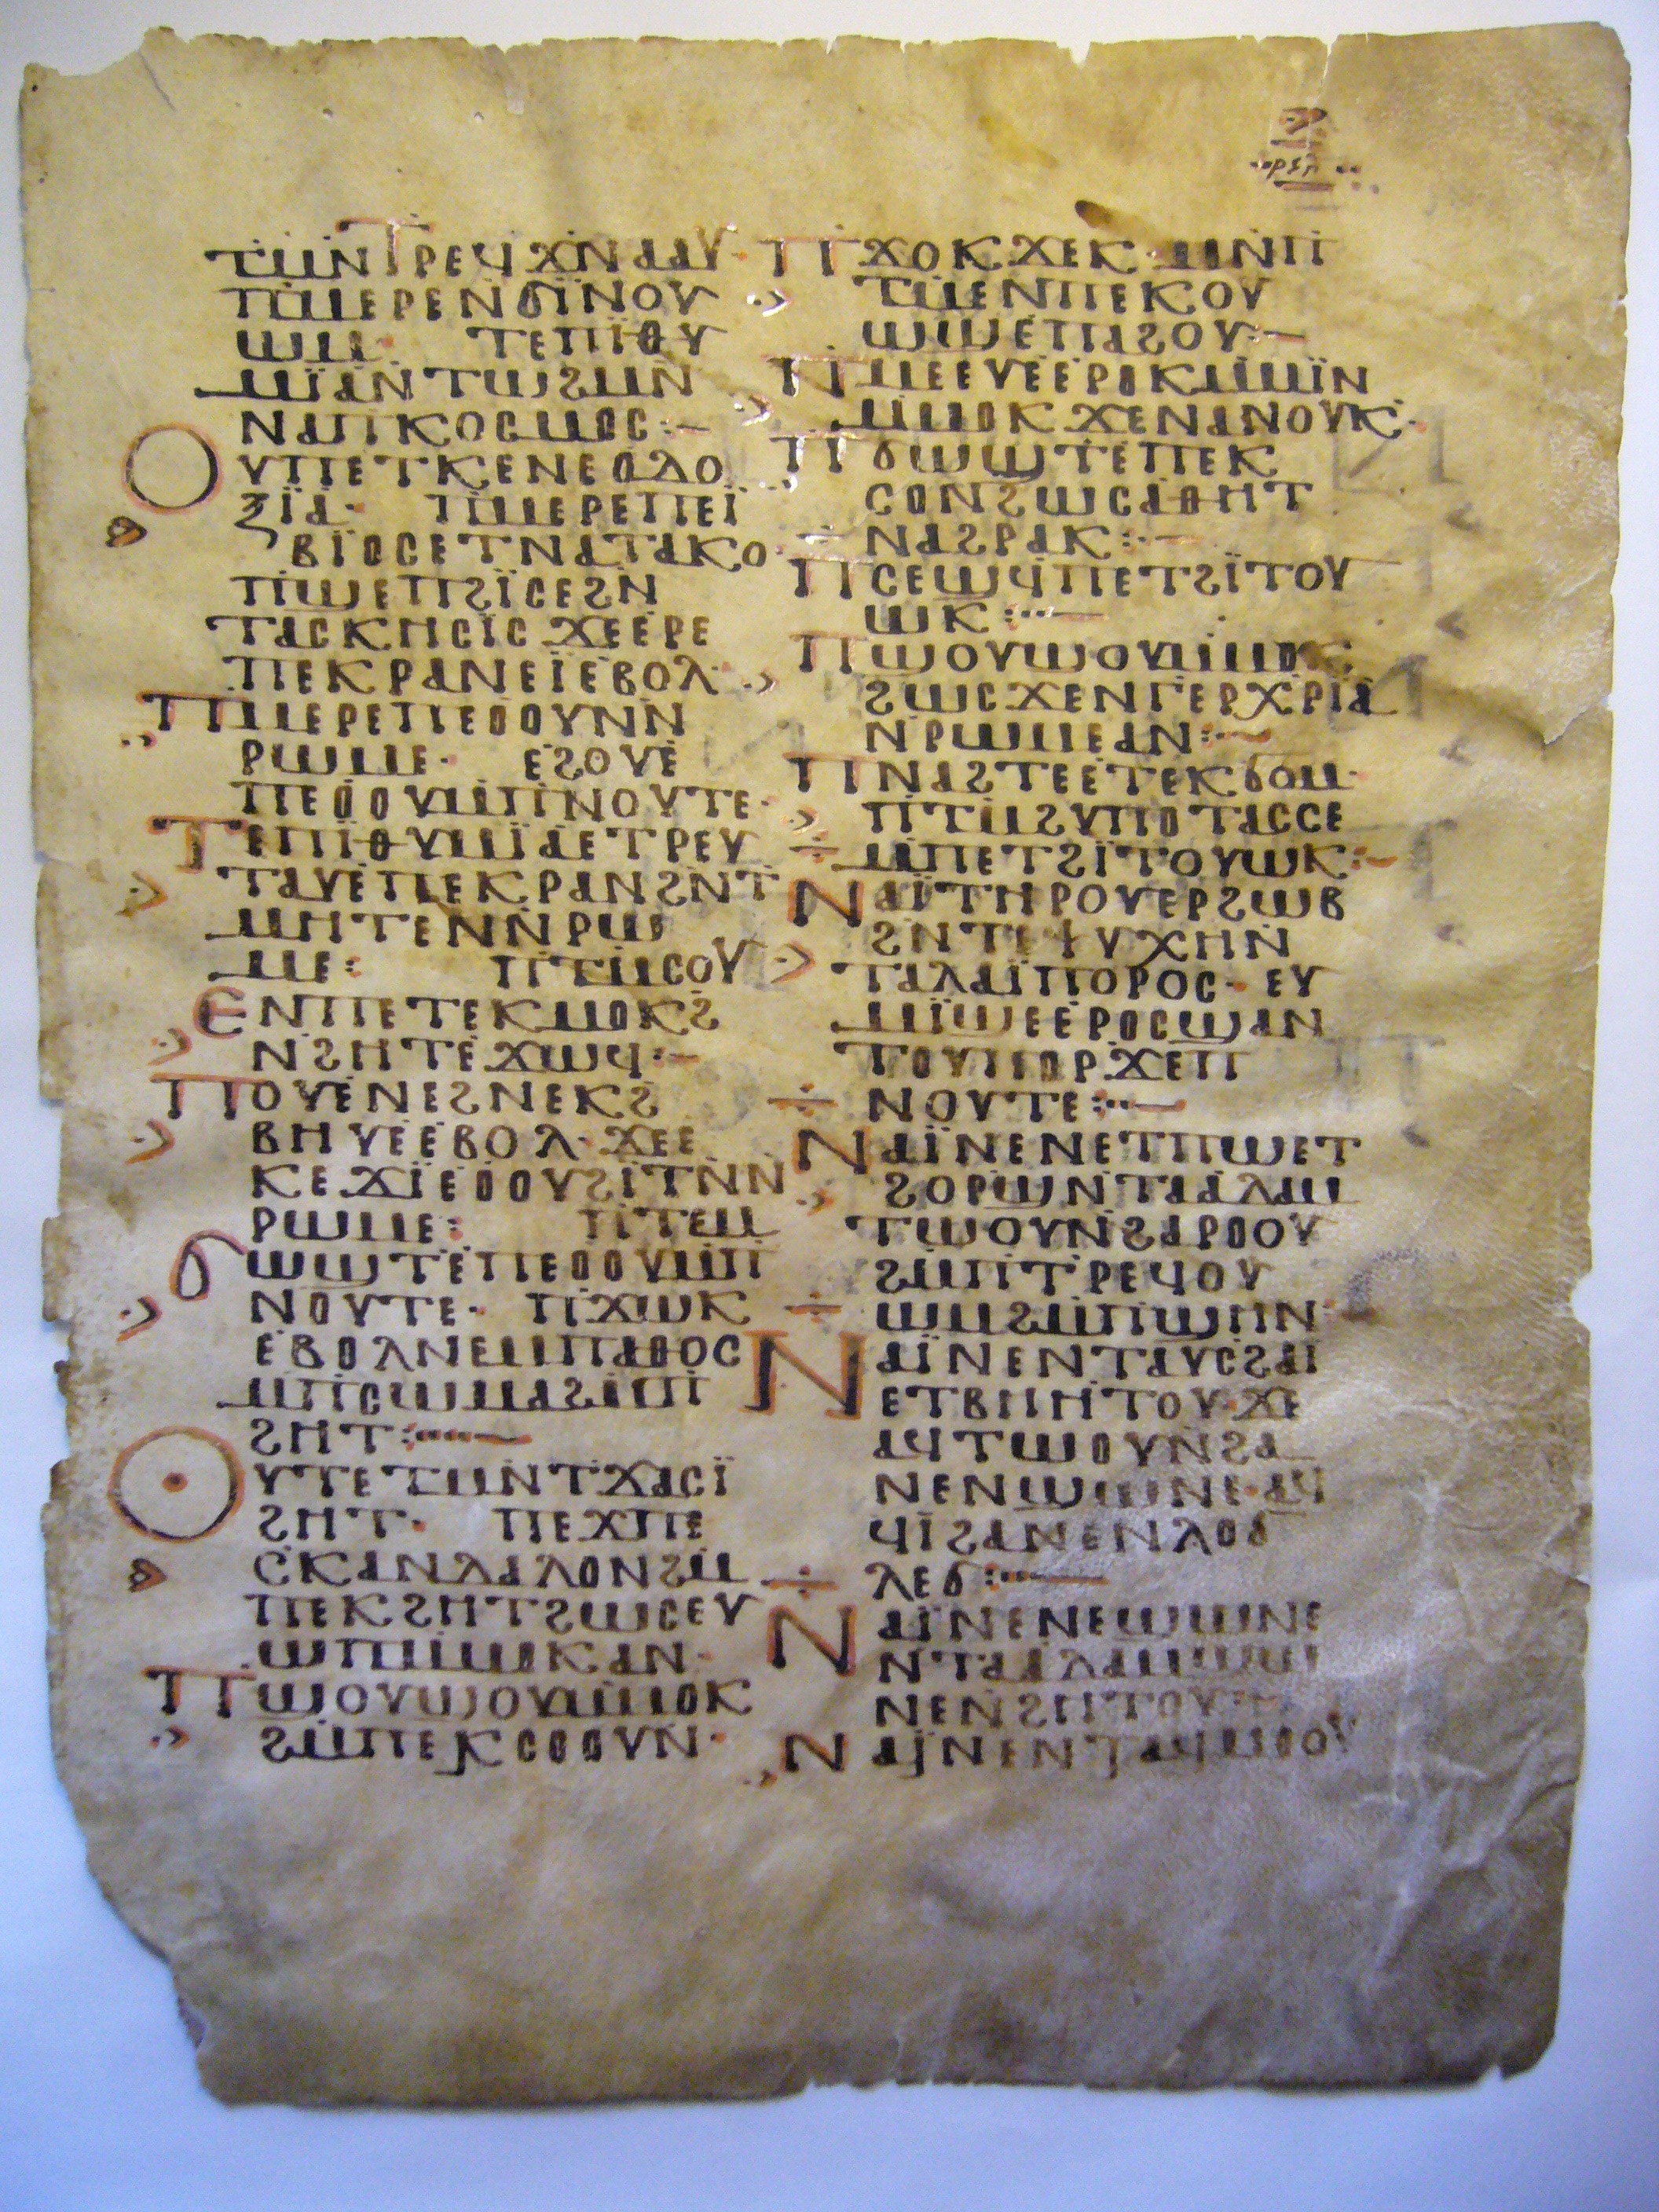 ⲣⲝⲗ
ⲧⲙⲛⲧⲣⲉϥϫⲛⲗⲁⲩ·
ⲡⲙⲉⲣⲉⲛϭⲓⲛⲟⲩ
ⲱⲙ· ⲧⲉⲡⲓⲑⲩ
ⲙⲓⲁⲛⲧⲱϩⲙⲛ
ⲛⲁⲡⲕⲟⲥⲙⲟⲥ:—
ⲟⲩⲡⲉⲧⲕⲉⲛⲉⲟⲇⲟ
ⲝⲓⲁ· ⲡⲙⲉⲣⲉⲡⲉⲓ
ⲃⲓⲟⲥⲉⲧⲛⲁⲧⲁⲕⲟ
ⲡϣⲉⲡϩⲓⲥⲉϩⲛ
ⲧⲁⲥⲕⲏⲥⲓⲥϫⲉⲉⲣⲉ
ⲡⲉⲕⲣⲁⲛⲉⲓⲉⲃⲟⲗ·
ⲡⲙⲉⲣⲉⲡⲉⲟⲟⲩⲛⲛ
ⲣⲱⲙⲉ· ⲉϩⲟⲩⲉ
ⲡⲉⲟⲟⲩⲙⲡⲛⲟⲩⲧⲉ·
ⲧⲉⲡⲓⲑⲩⲙⲓⲁⲉⲧⲣⲉⲩ
ⲧⲁⲩⲉⲡⲉⲕⲣⲁⲛϩⲛⲧ
ⲙⲏⲧⲉⲛⲛⲣⲱ
ⲙⲉ: ⲡⲧⲙⲥⲟⲩ
ⲉⲛⲡⲉⲧⲉⲕⲙⲟⲕϩ
ⲛϩⲏⲧⲉϫⲱϥ:—
ⲡⲟⲩⲉⲛⲉϩⲛⲉⲕϩ
ⲃⲏⲩⲉⲉⲃⲟⲗ·ϫⲉⲉ
ⲕⲉϫⲓⲉⲟⲟⲩϩⲓⲧⲛⲛ
ⲣⲱⲙⲉ: ⲡⲧⲉⲙ
ϭⲱϣⲧⲉⲡⲉⲟⲟⲩⲙⲡ
ⲛⲟⲩⲧⲉ· ⲡϫⲱⲕ
ⲉⲃⲟⲗⲛⲉⲙⲡⲁⲑⲟⲥ
ⲙⲡⲥⲱⲙⲁϩⲙⲡ
ϩⲏⲧ:—
ⲟⲩⲧⲉⲧⲙⲛⲧϫⲁⲥⲓ
ϩⲏⲧ· ⲡⲉϫⲡⲉ
ⲥⲕⲁⲛⲇⲁⲗⲟⲛϩⲙ
ⲡⲉⲕϩⲏⲧϩⲱⲥⲉⲩ
ⲱⲡⲙⲙⲟⲕⲁⲛ·
ⲡϣⲟⲩϣⲟⲩⲙⲙⲟⲕ
ϩⲙⲡⲉⲕⲥⲟⲟⲩⲛ·
ⲡϫⲟⲕϫⲉⲕ·ⲙⲛⲡ
ⲧⲙⲉⲛⲡⲉⲕⲟⲩ
ⲱϣⲉⲡⲁϩⲟⲩ:—
ⲡⲙⲉⲉⲩⲉⲉⲣⲟⲕⲙⲙⲓⲛ
ⲙⲙⲟⲕϫⲉⲛⲁⲛⲟⲩⲕ·
ⲡϭⲱϣⲧⲉⲡⲉⲕ
ⲥⲟⲛϩⲱⲥⲁⲑⲏⲧ
ⲛⲁϩⲣⲁⲕ:—
ⲡⲥⲉϣϥⲡⲉⲧϩⲓⲧⲟⲩ
ⲱⲕ:—
ⲡϣⲟⲩϣⲟⲩⲙⲙⲟⲕ
ϩⲱⲥϫⲉⲛⲅⲉⲣⲭⲣⲓⲁ
ⲛⲣⲱⲙⲉⲁⲛ:—
ⲡⲛⲁϩⲧⲉⲉⲧⲉⲕϭⲟⲙ·
ⲡⲧⲙϩⲩⲡⲟⲧⲁⲥⲥⲉ
ⲙⲡⲉⲧϩⲓⲧⲟⲩⲱⲕ:—
ⲛⲁⲓⲧⲏⲣⲟⲩⲉⲣϩⲱⲃ
ϩⲛⲧⲉⲯⲩⲭⲏⲛ
ⲧⲁⲗⲁⲓⲡⲟⲣⲟⲥ· ⲉⲩ
ⲙⲓϣⲉⲉⲣⲟⲥϣⲁⲛ
ⲧⲟⲩⲡⲟⲣϫⲉⲡ
ⲛⲟⲩⲧⲉ:—
ⲛⲁⲓⲛⲉⲛⲉⲧⲡⲱⲉⲧ
ϩⲟⲣϣⲛⲧⲁⲁⲇⲁⲙ
ⲧⲱⲟⲩⲛϩⲁⲣⲟⲟⲩ
ϩⲙⲡⲧⲣⲉϥⲟⲩ
ⲱⲙϩⲙⲡϣⲏⲛ·
ⲛⲁⲓⲛⲉⲛⲧⲁⲩⲥϩⲁⲓ
ⲉⲧⲃⲏⲏⲧⲟⲩ·ϫⲉ
ⲁϥⲧⲱⲟⲩⲛϩⲁ
ⲛⲉⲛϣⲱⲛⲉ·ⲁϥ
ϥⲓϩⲁⲛⲉⲛⲗⲟϭ
ⲗⲉϭ:—
ⲛⲁⲓⲛⲉⲛⲉϣⲱⲛⲉ
ⲛⲧⲁⲁⲇⲁⲙϣⲱ
ⲛⲉⲛϩⲏⲧⲟⲩ
ⲛⲁⲓⲛⲉⲛⲧⲁϥⲙⲟⲟⲩ